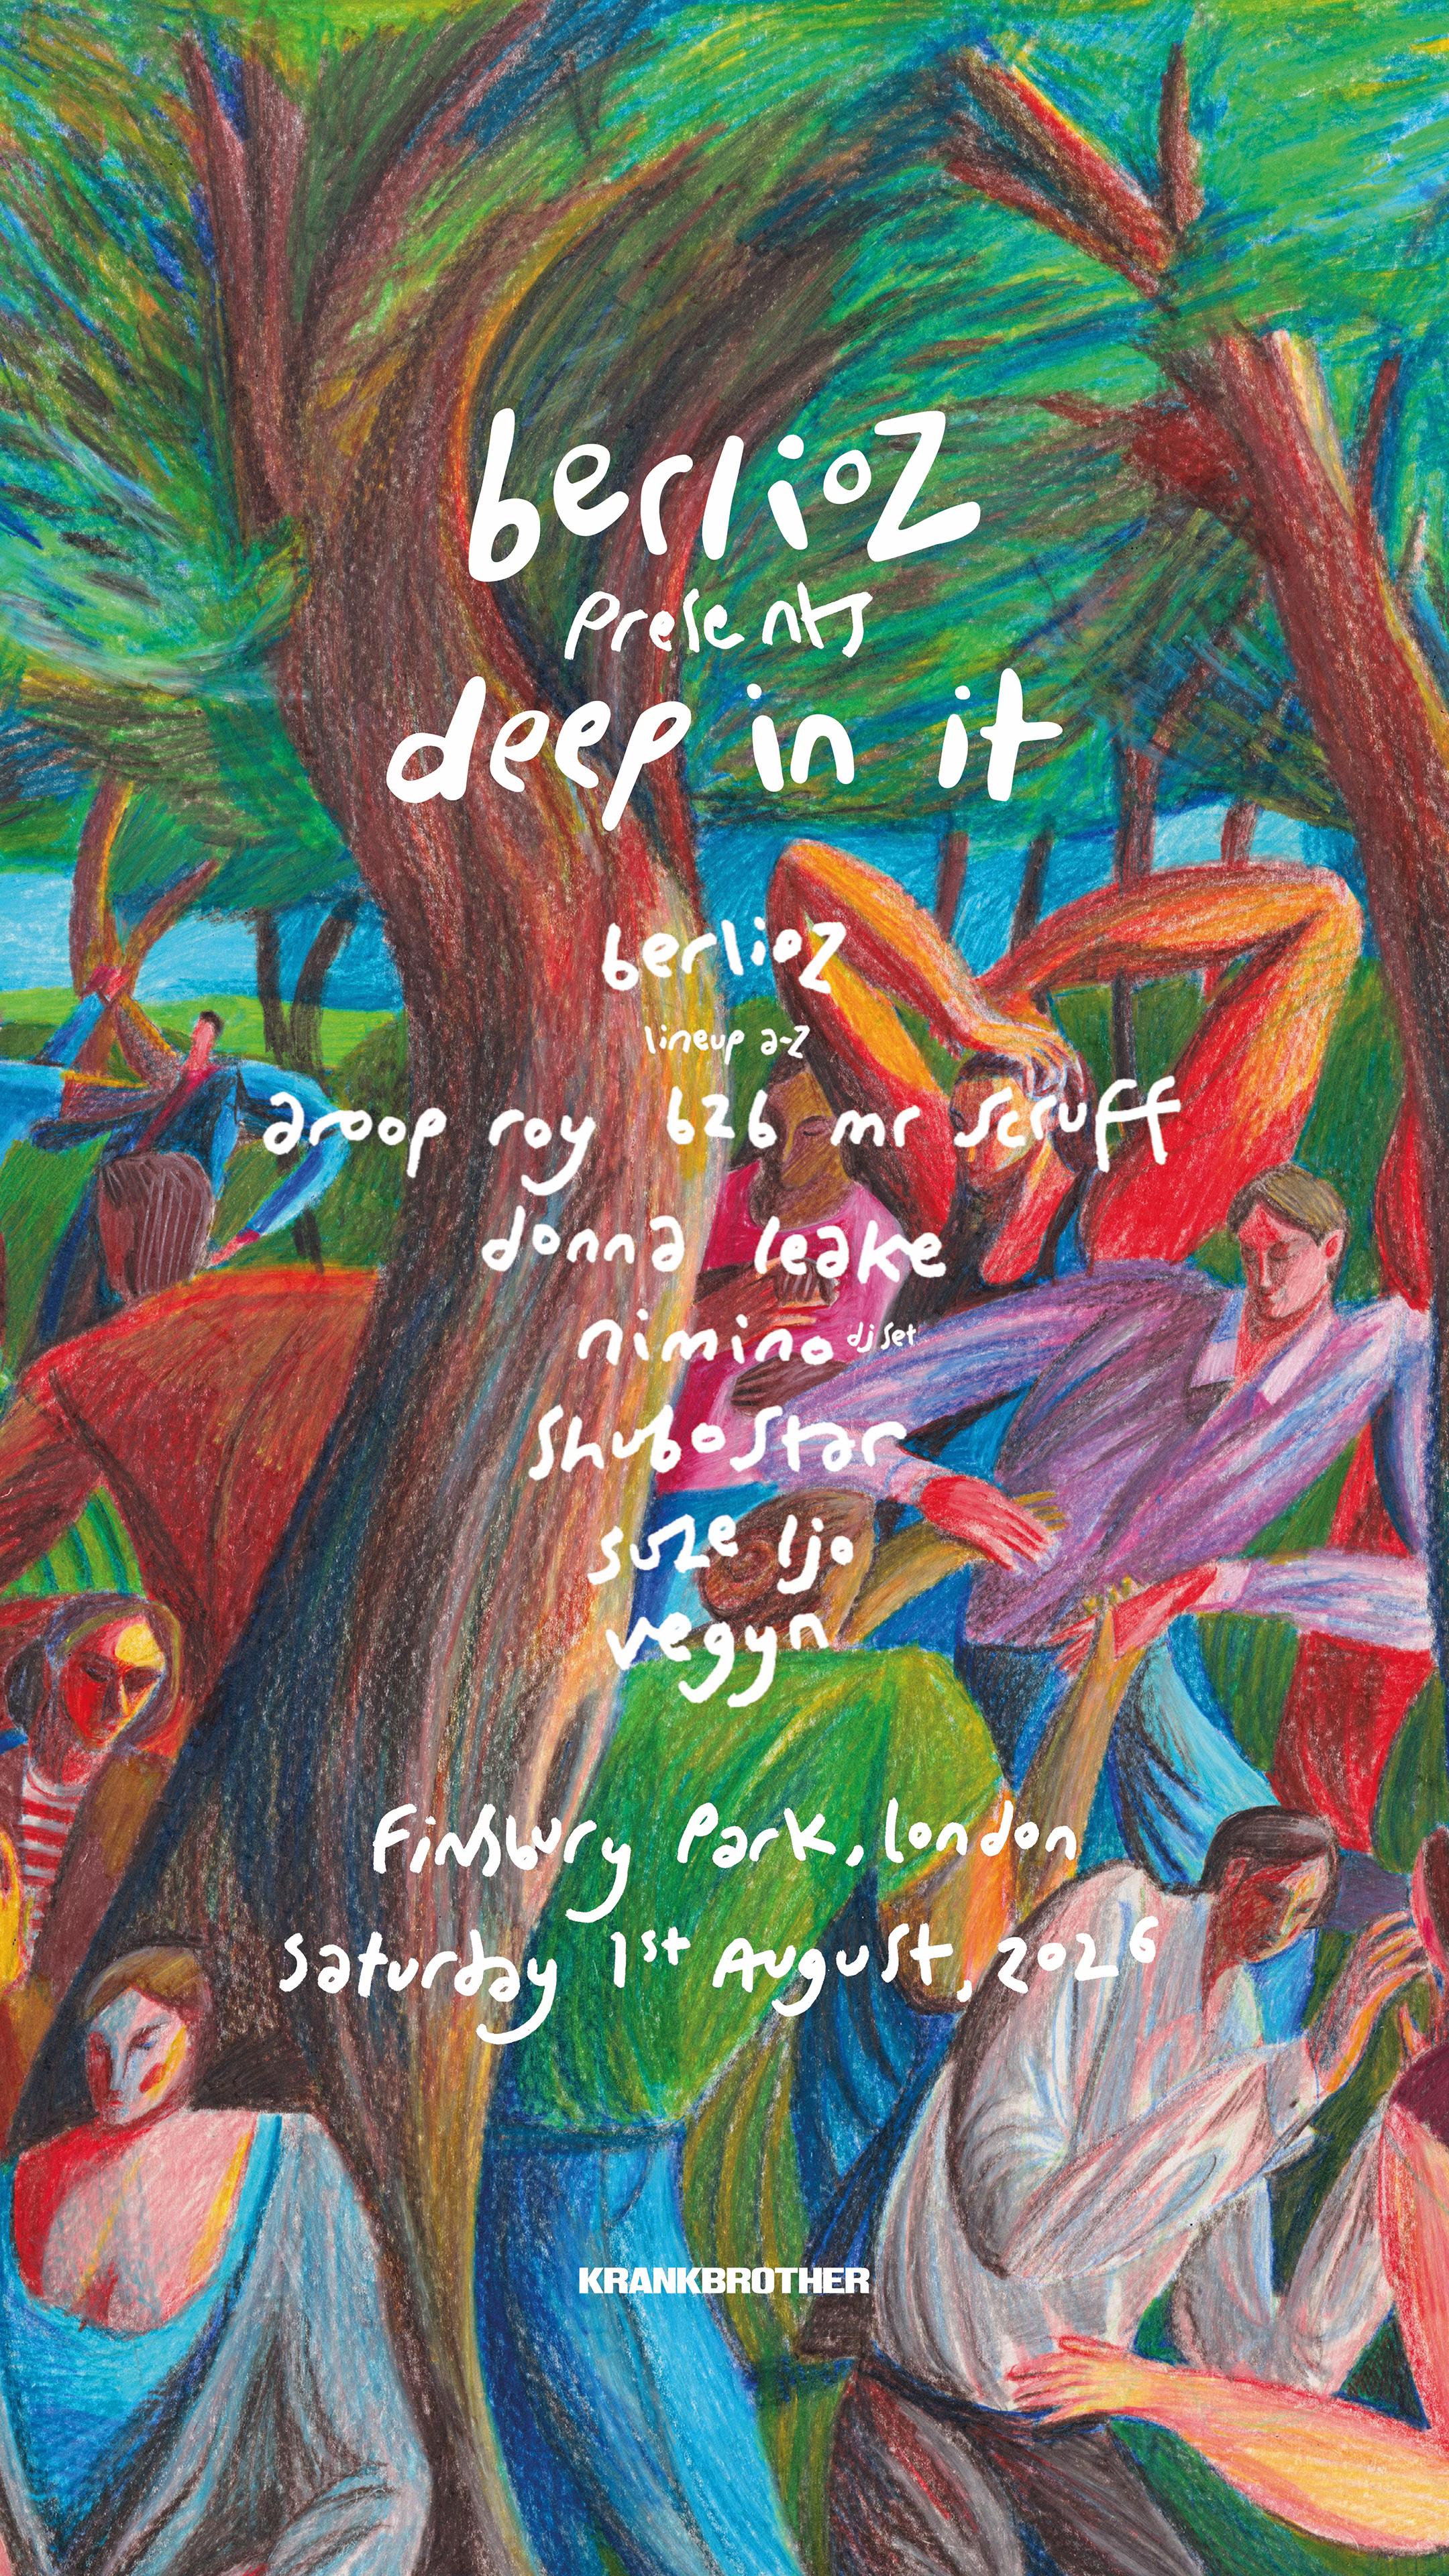 berlioz
presents
deep in it
berlioz
lineup a-z
aroop roy b2b mr scruff
donna leake
nimino dj set
shubostar
suze ijo
vegyn
Finsbury Park, london
Saturday 1st August, 2026
KRANKBROTHER